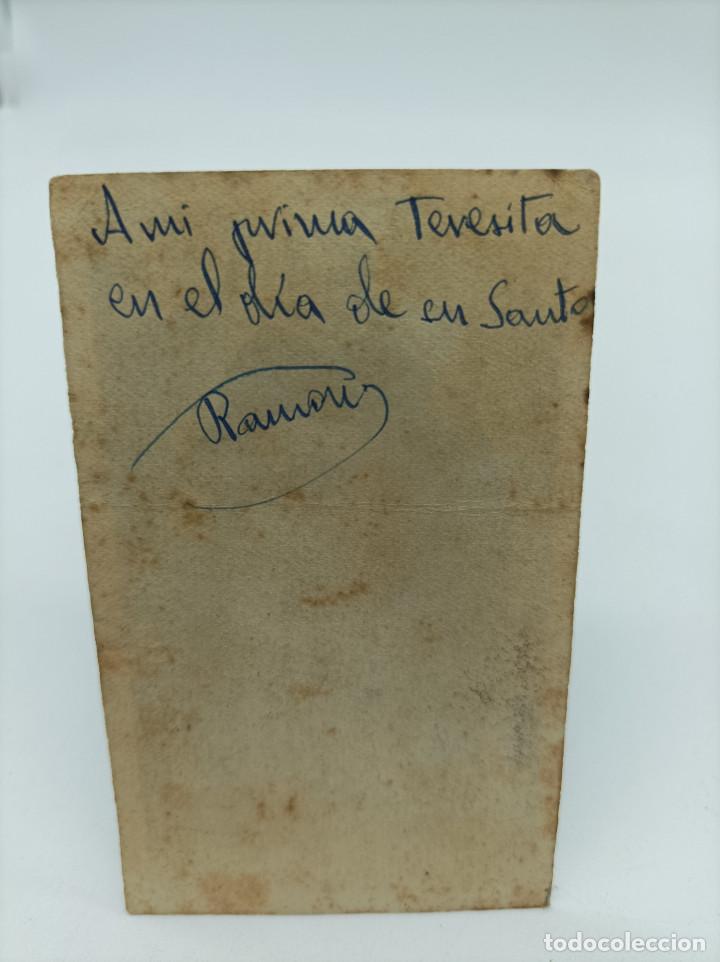 A mi prima Teresita
en el día de su Santo
Ramón
todocoleccion.net